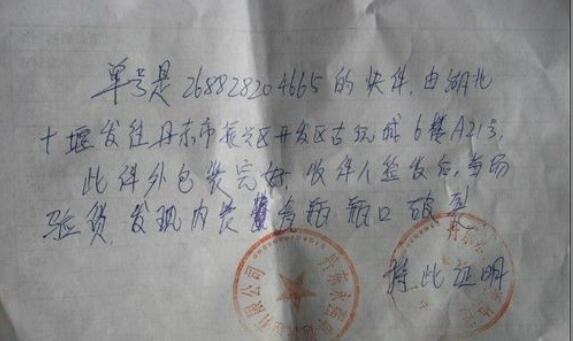 单号是268828204665的快件,由湖北
十堰发往丹东市振兴区开发区古玩城6楼A21号,
此件外包装完好,收件人签发后,当场
验货,发现内装瓷瓶瓶口破裂
持此证明